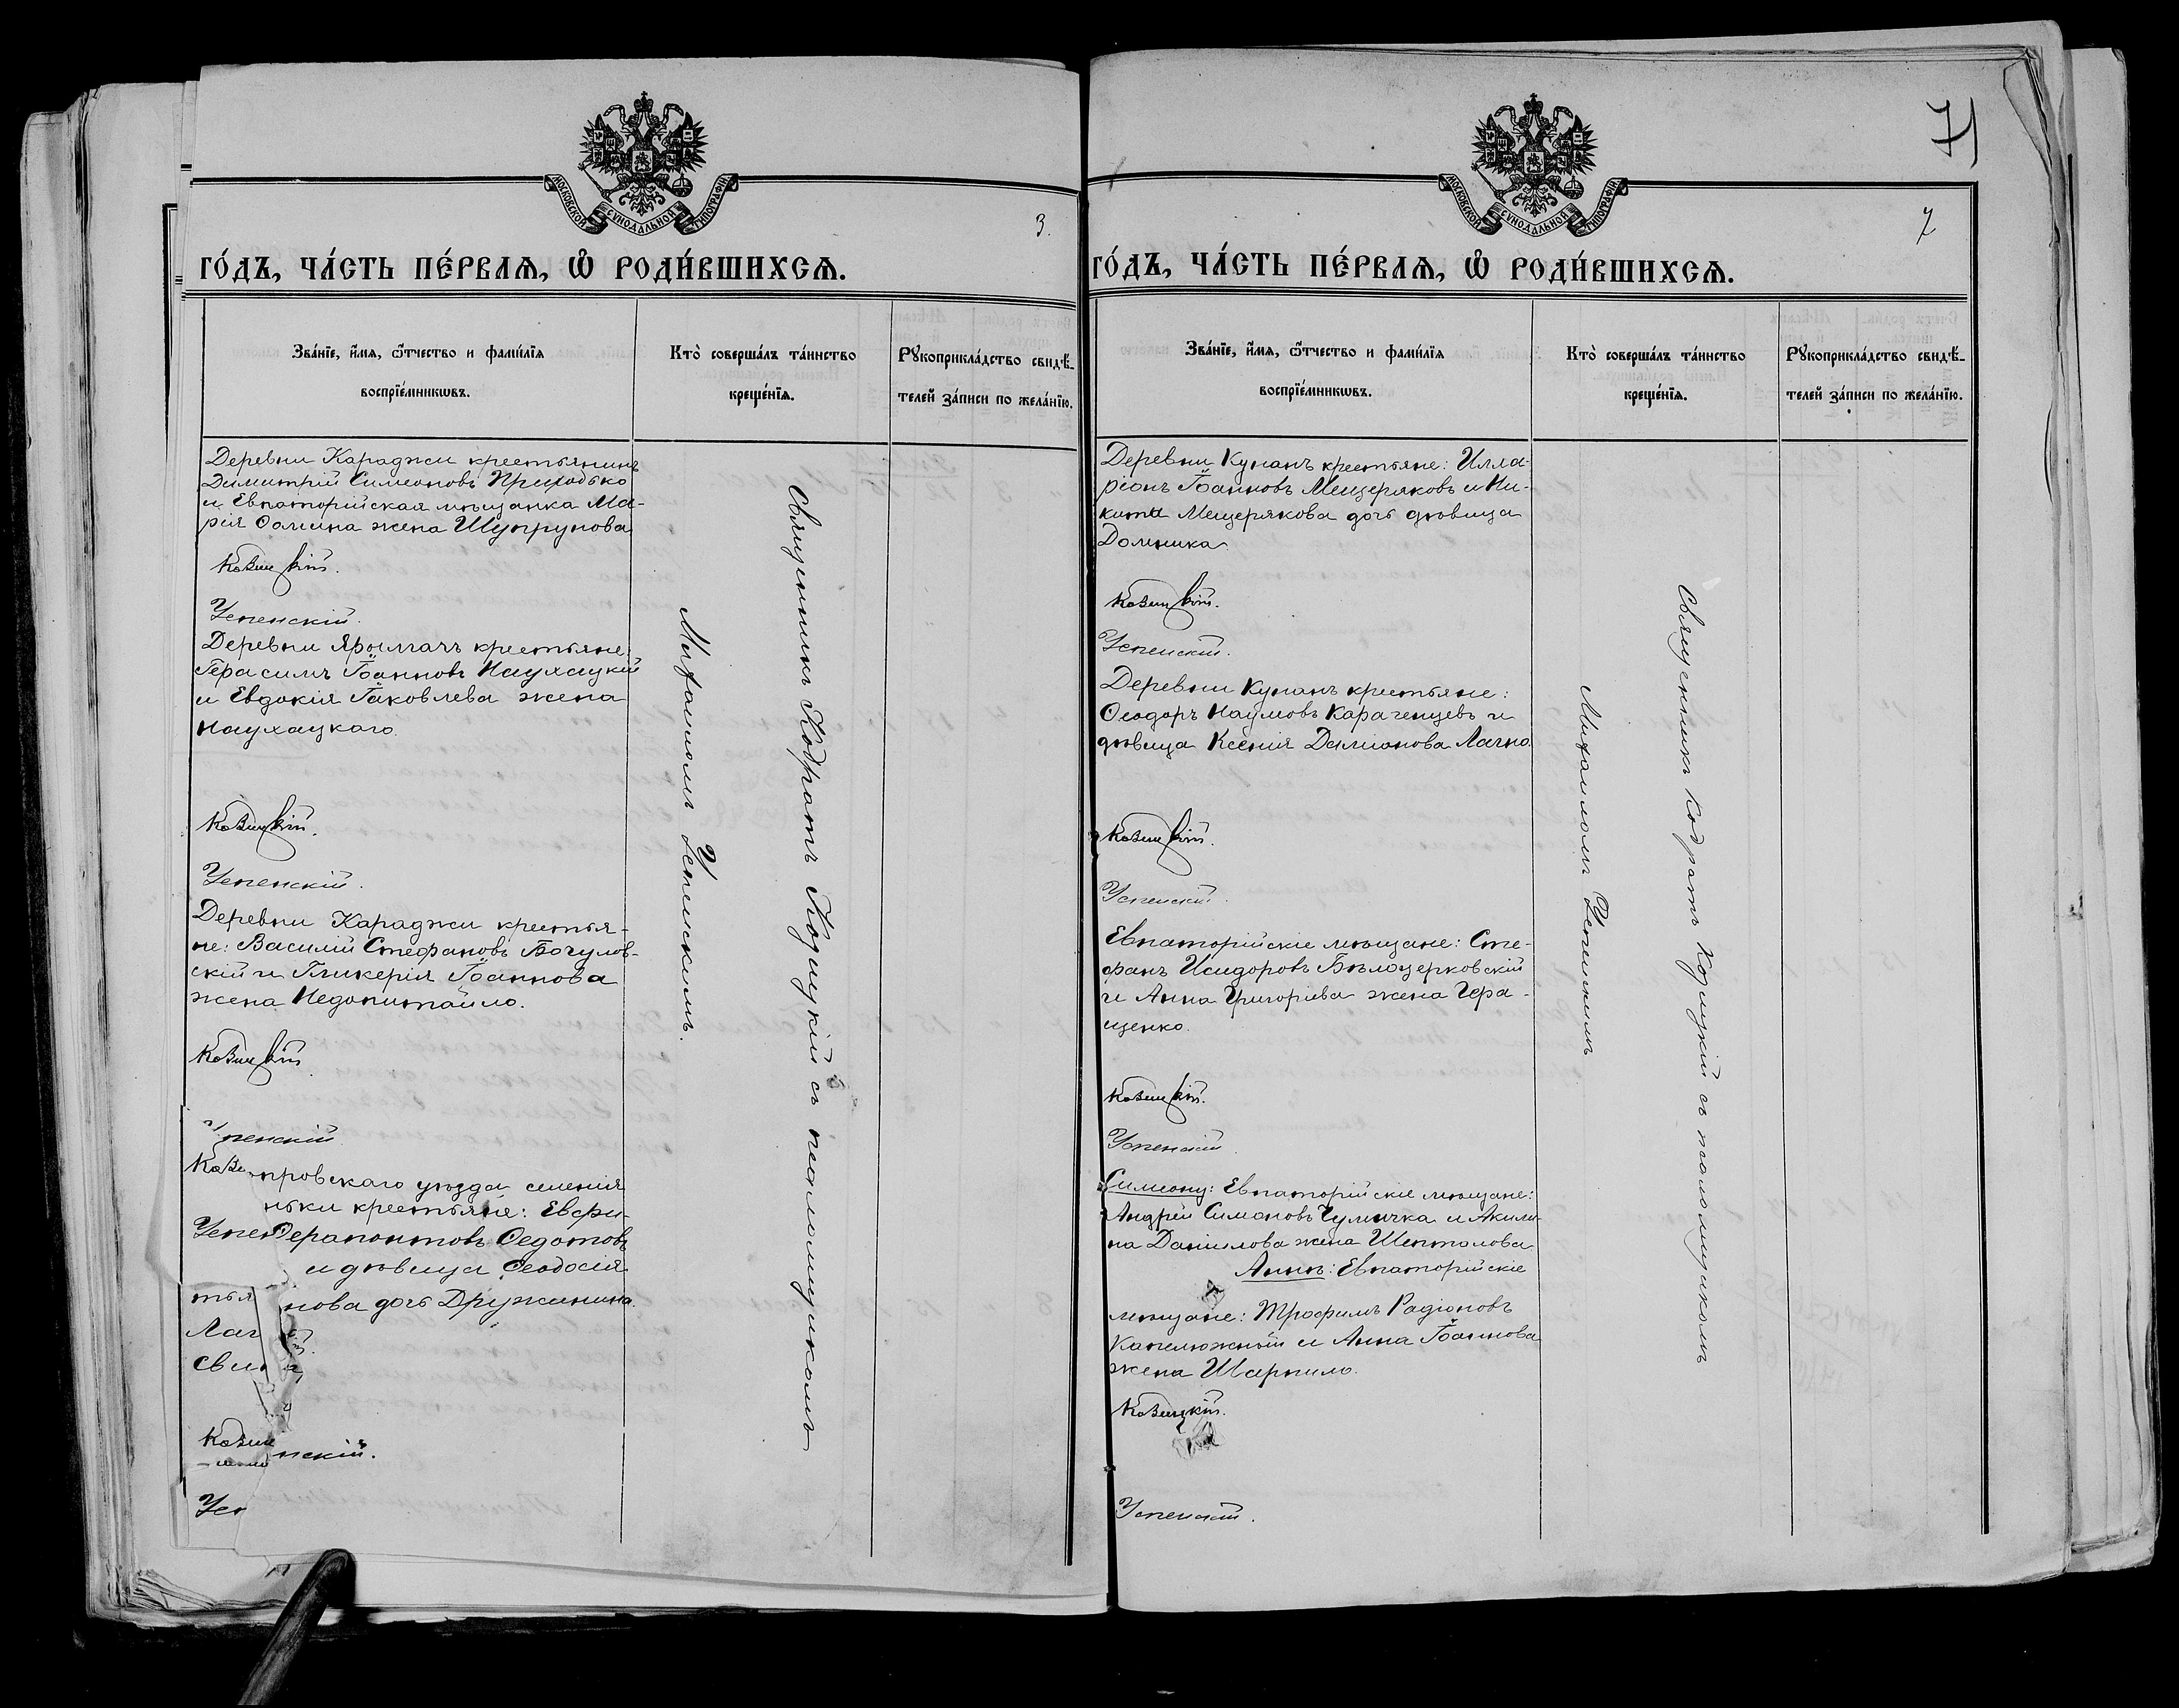 МОСКОВСКОЙ СѴНОДАЛЬНОЙ ТИПОГРАФІИ
3.
ГО́ДЪ, ЧА́СТЬ ПЕ́РВАѦ, Ѽ РОДИ́ВШИХСѦ.
Зва́нїе, и҆́мѧ, ѻ҆́тчество и фами́лїѧ
воспрїе́мникѡвъ.
Кто̀ соверша́лъ та́инство
креще́нїѧ.
Рꙋкоприкла́дство свидѣ́-
телей за́писи по жела́нїю.
Деревни Караджи крестьянинъ
Димитрій Симеоновъ Приходько
и Евпаторійская мѣщанка Ма-
рія Ѳомина жена Шупрунова
Козицкій.
Успенскій.
Деревни Ярылгачъ крестьяне:
Герасимъ Іоанновъ Наухацкій
и Евдокія Іаковлева жена
Наухацкаго.
Козицкій.
Успенскій.
Деревни Караджи крестья-
не: Василій Стефановъ Богулов-
скій и Гликерія Іоаннова
жена Недопитайло.
Козицкій.
Успенскій
Кози
провскаго уѣзда селенія
ньки крестьяне: Евфи-
Успе Ферапонтовъ Ѳедотовъ
и дѣвица Ѳеодосія
тья нова дочь Дружинина.
Лаг
сви
Кози
нскій.
Усп
Священникъ Кодратъ Козицкій съ псаломщикомъ
Михаиломъ Успенскимъ.
71
МОСКОВСКОЙ СѴНОДАЛЬНОЙ ТИПОГРАФІИ
7
ГО́ДЪ, ЧА́СТЬ ПЕ́РВАѦ, Ѽ РОДИ́ВШИХСѦ.
Зва́нїе, и҆́мѧ, ѻ҆́тчество и фами́лїѧ
воспрїе́мникѡвъ.
Кто̀ соверша́лъ та́инство
креще́нїѧ.
Рꙋкоприкла́дство свидѣ́-
телей за́писи по жела́нїю.
Деревни Кунанъ крестьяне: Илла-
ріонъ Іоанновъ Мещеряковъ и Ни-
киты Мещерякова дочь дѣвица
Домника.
Козицкій.
Успенскій.
Деревни Кунанъ крестьяне:
Ѳеодоръ Наумовъ Караченцевъ и
дѣвица Ксенія Даміанова Лагно.
Козицкій.
Успенскій.
Евпаторійскіе мѣщане: Сте-
фанъ Исидоровъ Бѣлоцерковскій
и Анна Григоріева жена Гера-
щенко.
Козицкій.
Успенскій.
Симеону: Евпаторійскіе мѣщане:
Андрей Симоновъ Чумичка и Акили-
на Даніилова жена Шепталова
Аннѣ: Евпаторійскіе
мѣщане: Трофимъ Радіоновъ
Капелюжный и Анна Іоаннова
жена Шарпило.
Козицкій.
Успенскій.
Священникъ Кодратъ Козицкій съ псаломщикомъ
Михаиломъ Успенскимъ